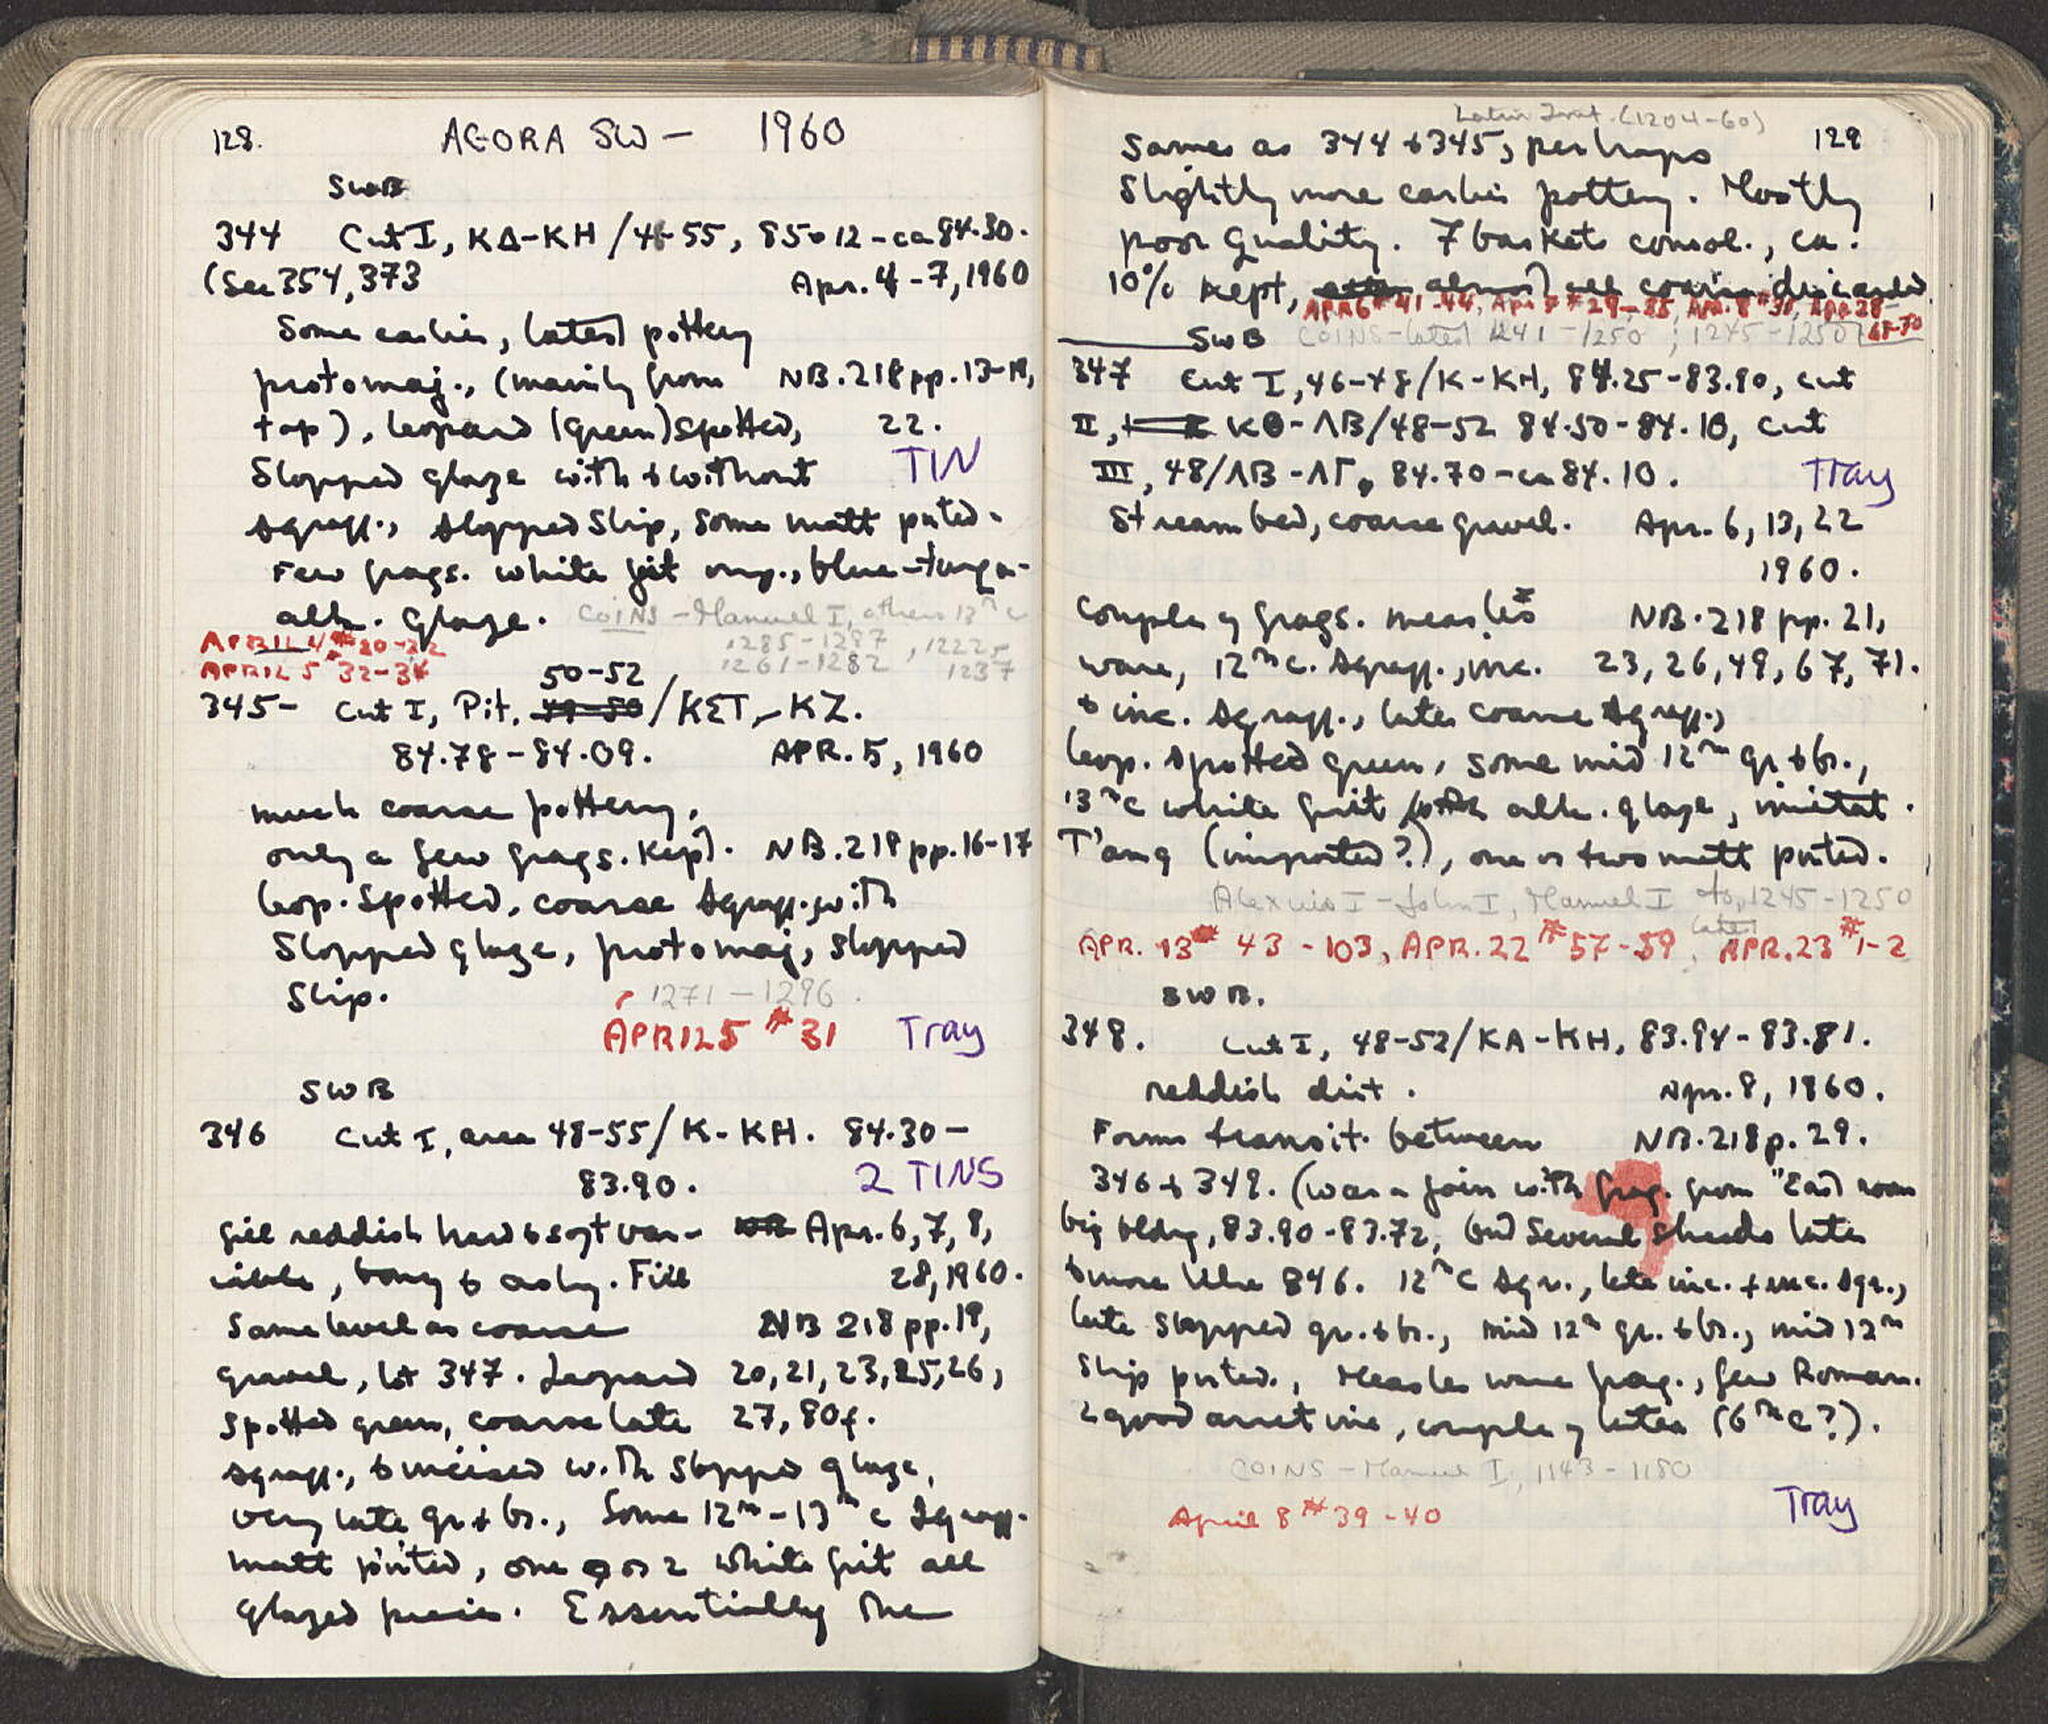 128. AGORA SW - 1960
SWB
344 Cut I, KΔ-KH / 46-55, 85.12 - ca 84.30.
(See 354, 373 Apr. 4-7, 1960
Some earlier, latest pottery
protomaj., (mainly from NB. 218 pp. 13-19,
top), leopard (green) spotted, 22.
Slopped glaze with & without TIN
sgraff., slopped slip, some matt pnted.
Few frags. white frit imp., blue-turq-
alk. glaze. COINS - Manuel I, others 12th c
APRIL 4 #20-22 1285-1287, 1222
APRIL 5 #32-34 1261-1282 1237
50-52
345- Cut I, Pit, /KΣT - KZ.
84.78-84.09. APR. 5, 1960
much coarse pottery,
only a few frags. kept. NB. 218 pp. 16-17
leop. spotted, coarse sgraff. with
Slopped glaze, protomaj, slopped
slip. 1271-1296.
APRIL 5 #31 Tray
SWB
346 Cut I, area 48-55/K-KH. 84.30-
83.90. 2 TINS
fill reddish hard & soft var- Apr. 6, 7, 8,
iable, boney & ashy. Fill 28, 1960.
Same level as coarse NB 218 pp. 19,
gravel, lot 347. Leopard 20, 21, 23, 25, 26,
spotted green, coarse late 27, 80f.
sgraff., & incised with slopped glaze,
very late gr & br., Some 12th-13th c sgraff.
matt pnted, one or 2 white frit alk
glazed pieces. Essentially the
Latin Imit. (1204-60)
same as 344 & 345, perhaps 129
slightly more earlier pottery. Mostly
poor quality. 7 baskets consol., ca.
10% kept, almost all coarse discarded
APR 6 #41-44, Apr 7 #29-35, Apr. 8 #38, Apr 28
SWB COINS - latest 1241-1250; 1245-1250 68-70
347 Cut I, 46-48/K-KH, 84.25-83.90, cut
II, KΘ-ΛB/48-52 84.50-84.10, cut
III, 48/ΛB-ΛΓ, 84.70-ca 84.10. Tray
Stream bed, coarse gravel. Apr. 6, 13, 22
1960.
couple of frags. measles NB. 218 pp. 21,
ware, 12th c. sgraff., inc. 23, 26, 49, 67, 71.
& inc. sgraff., later coarse sgraff.,
leop. spotted green, some mid 12th gr & br.,
13th c white frit with alk. glaze, imitat.
T'ang (imported?), one or two matt pnted.
Alexius I - John I, Manuel I to, 1245-1250
latest
APR. 13 #43-103, APR. 22 #57-59, APR. 23 #1-2
SWB.
348. Cut I, 48-52/KA-KH, 83.94-83.81.
reddish dirt. Apr. 8, 1960.
Forms transit. between NB. 218 p. 29.
346 & 349. (was a join with frag. from "East room
big bldg, 83.90-83.72, but several sherds later
& more like 346. 12th c sgr., late inc. & inc. sgr.,
late slopped gr. & br., mid 12th gr. & br., mid 12th
slip pnted., Measles ware frag., few Roman.
2 good arretine, couple of later (6th c?).
COINS - Manuel I, 1143-1180
April 8 #39-40 Tray